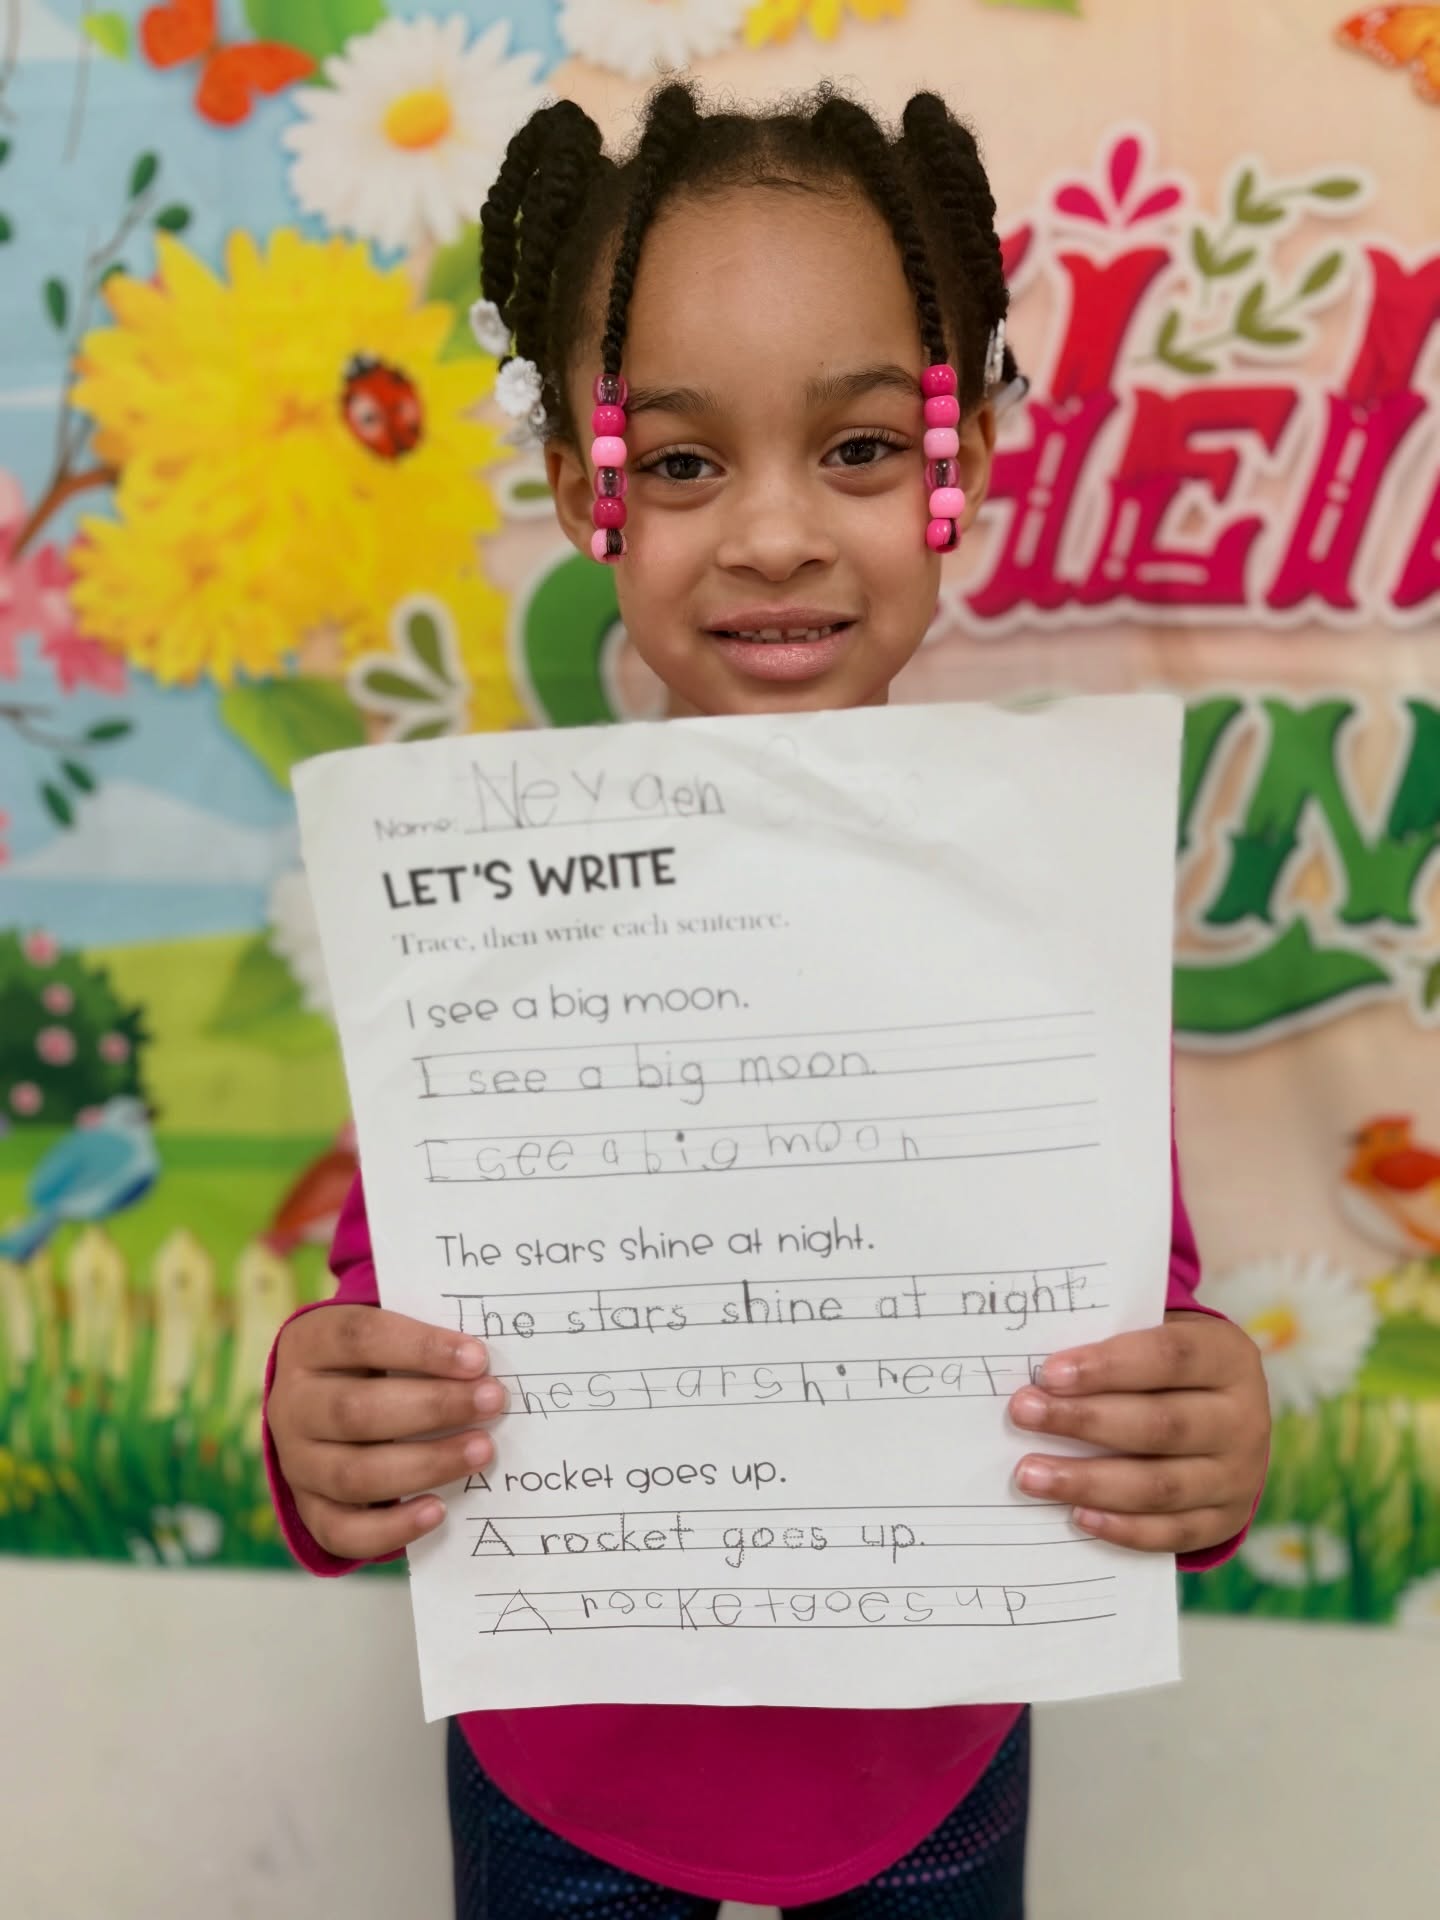 Name: Nevaeh
LET'S WRITE
Trace, then write each sentence.
I see a big moon.
I see a big moon.
I see a big moon
The stars shine at night.
The stars shine at night.
hestarshineat
A rocket goes up.
A rocket goes up.
A rocketgoes up